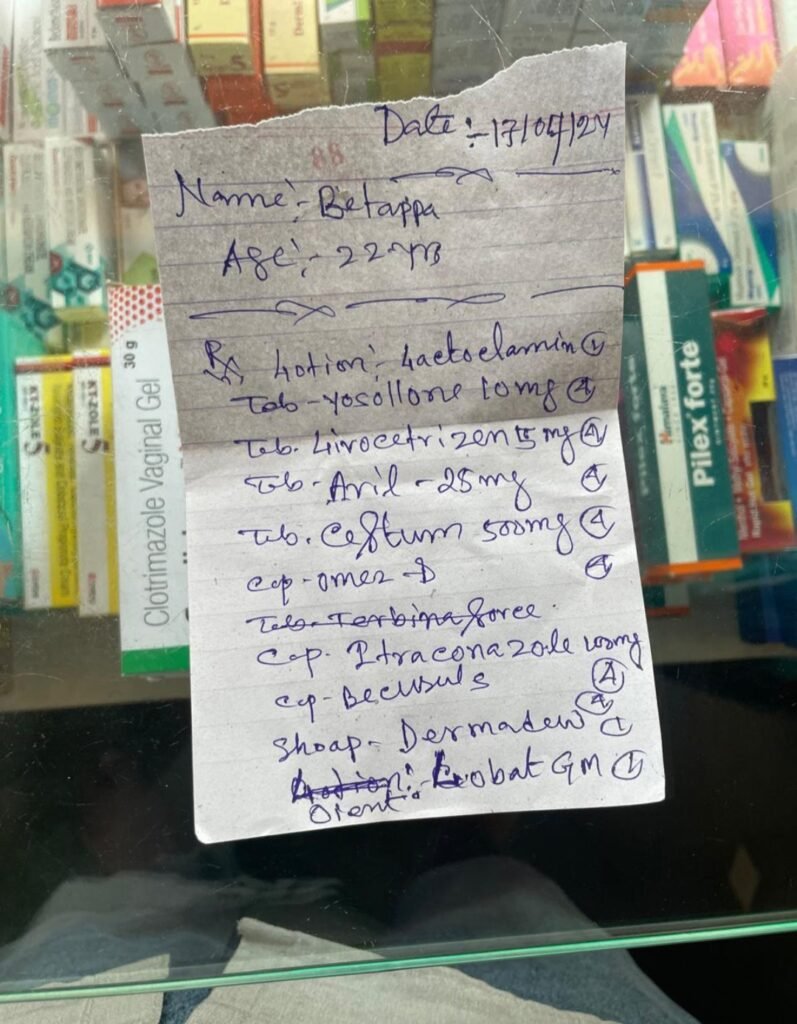 Date :- 17/04/24
88
Name :- Betappa
Age :- 22 yrs
Rx Lotion :- Lactoclamin 1
Tab - ysollone 10mg 4
Tab. Livocetrizen 5 mg 4
Tab - Avil - 25 mg 4
Tab. Ceftum 500mg 4
Cap - omez - D 4
Tab. Terbinaforce
Cap. Itraconazole 100mg 4
Cap - Becusuls 4
Shoap - Dermadew 1
Lotion :- Lobat GM 1
Oient :
Clotrimazole Vaginal Gel
30 g
KT-ZOLE 5
KT-ZOLE 5
Himalaya
Pilex forte